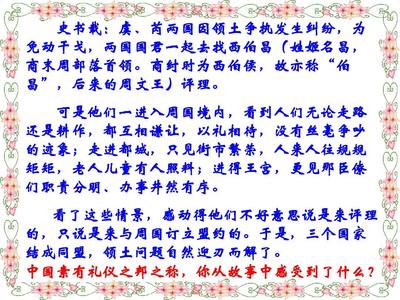 史书载：虞、芮两国因领土争执发生纠纷，为
免动干戈，两国国君一起去找西伯昌（姓姬名昌，
商末周部落首领。商纣时为西伯侯，故亦称“伯
昌”，后来的周文王）评理。
可是他们一进入周国境内，看到人们无论走路
还是耕作，都互相谦让，以礼相待，没有丝毫争吵
的迹象；走进都城，只见街市繁荣，人来人往规规
矩矩，老人儿童有人照料；进得王宫，更见那臣僚
们职责分明、办事井然有序。
看了这些情景，感动得他们不好意思说是来评理
的，只说是来与周国订立盟约的。于是，三个国家
结成同盟，领土问题自然迎刃而解了。
中国素有礼仪之邦之称，你从故事中感受到了什么？